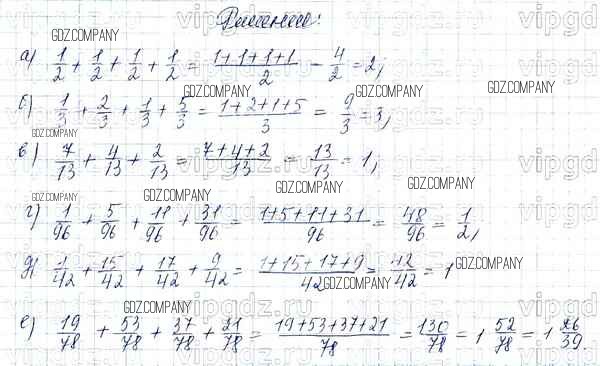 Решение:
а) 1/2 + 1/2 + 1/2 + 1/2 = (1+1+1+1)/2 - 4/2 = 2;
б) 1/3 + 2/3 + 1/3 + 5/3 = (1+2+1+5)/3 = 9/3 = 3,
в) 7/13 + 4/13 + 2/13 = (7+4+2)/13 = 13/13 = 1,
г) 1/96 + 5/96 + 11/96 + 31/96 = (1+5+11+31)/96 = 48/96 = 1/2,
д) 1/42 + 15/42 + 17/42 + 9/42 = (1+15+17+9)/42 = 42/42 = 1
е) 19/78 + 53/78 + 37/78 + 21/78 = (19+53+37+21)/78 = 130/78 = 1 52/78 = 1 26/39.
GDZ.COMPANY
GDZ.COMPANY
GDZ.COMPANY
GDZ.COMPANY
GDZ.COMPANY
GDZ.COMPANY
GDZ.COMPANY
GDZ.COMPANY
GDZ.COMPANY
GDZ.COMPANY
GDZ.COMPANY
GDZ.COMPANY
GDZ.COMPANY
GDZ.COMPANY
vipgdz.ru